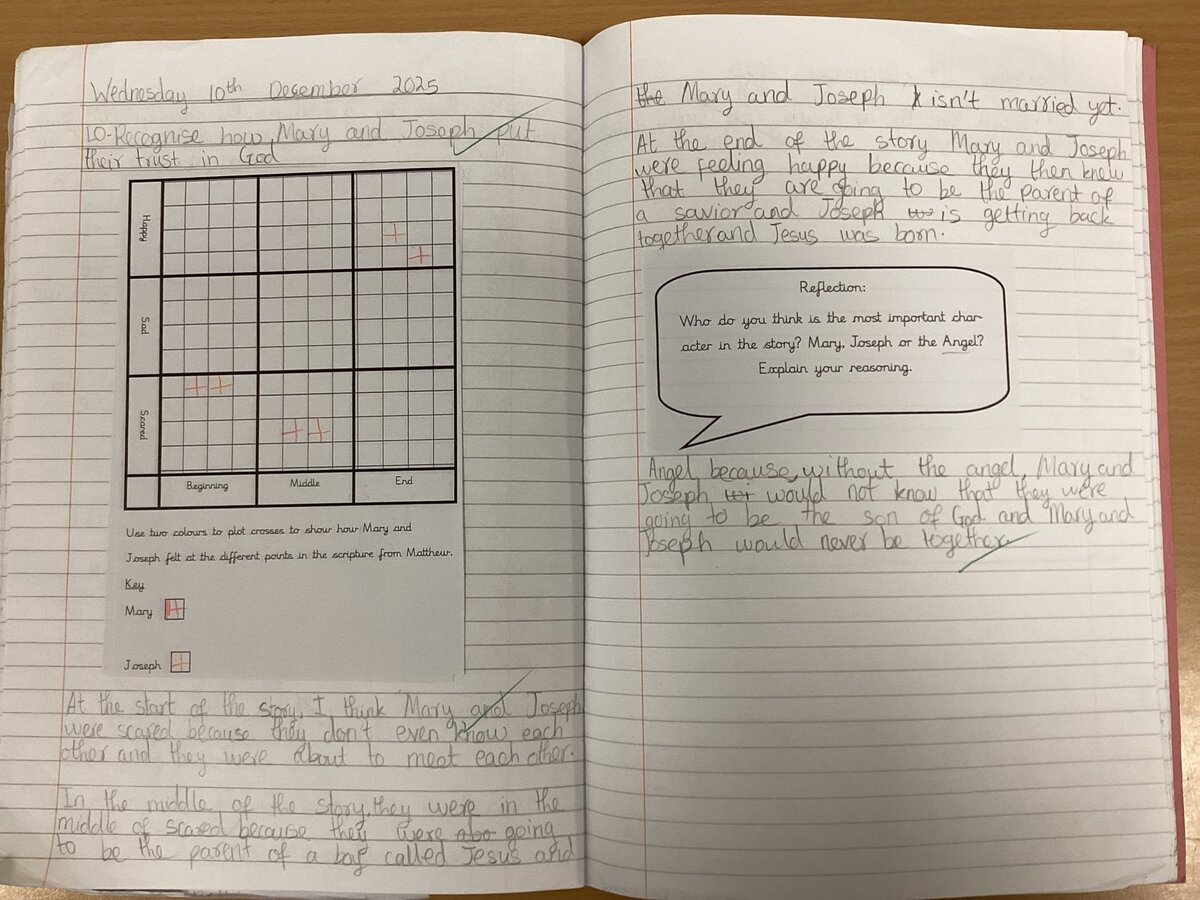 Wednesday 10th Desember 2025
LO-Recognise how Mary and Joseph put
their trust in God
Happy
Sad
Scared
Beginning Middle End
Use two colours to plot crosses to show how Mary and
Joseph felt at the different points in the scripture from Matthew.
Key
Mary
Joseph
At the start of the story, I think Mary and Joseph
were scared because they don't even know each
other and they were about to meet each other.
In the middle of the story, they were in the
middle of scared because they were abo going
to be the parent of a called Jesus and
the Mary and Joseph isn't married yet.
At the end of the story Mary and Joseph
were feeling happy because they then knew
that they are going to be the parent of
a savior and Joseph is getting back
together and Jesus was born.
Reflection:
Who do you think is the most important char-
acter in the story? Mary, Joseph or the Angel?
Explain your reasoning.
Angel, because, without the angel, Mary and
Joseph would not know that they were
going to be the son of God and Mary and
Joseph would never be together.